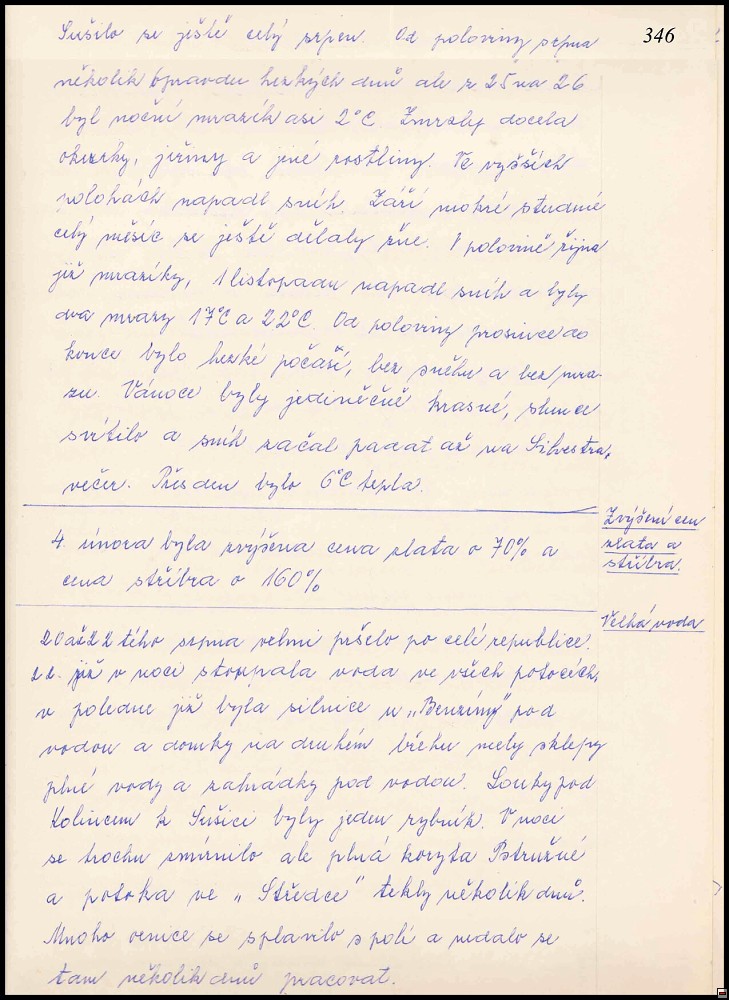 346
Sušilo se ještě celý srpen. Od poloviny srpna
několik opravdu hezkých dnů ale z 25 na 26
byl noční mrazík asi 2°C. Zmrzly docela
okurky, jiřiny a jiné rostliny. Ve vyšších
polohách napadl sníh. Září mokré studené
celý měsíc se ještě dělaly žně. V polovině října
již mrazíky, 1 listopadu napadl sníh a byly
dva mrazy 17°C a 22°C. Od poloviny prosince do
konce bylo hezké počasí, bez sněhu a bez mra-
zu. Vánoce byly jedinečně krasné, slunce
svítilo a sníh začal padat až na Silvestra,
večer. Přes den bylo 6°C tepla.
Zvýšení cen
zlata a
stříbra.
4. února byla zvýšena cena zlata o 70% a
cena stříbra o 160%
Velká voda
20až22 tého srpna velmi pršelo po celé republice.
22. již v noci stoupala voda ve všech potocích,
v poledne již byla silnice u „Benzíny" pod
vodou a domky na druhém břehu měly sklepy
plné vody a zahrádky pod vodou. Louky pod
Kolincem k Sušici byly jeden rybník. V noci
se trochu zmírnilo ale plná koryta Ostružné
a potoka ve „Středce" tekly několik dnů.
Mnoho ornice se splavilo s polí a nedalo se
tam několik dnů pracovat.